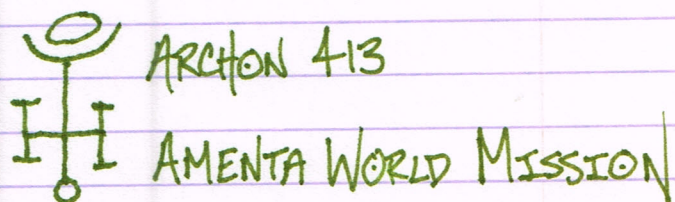 ARCHON 413
AMENTA WORLD MISSION